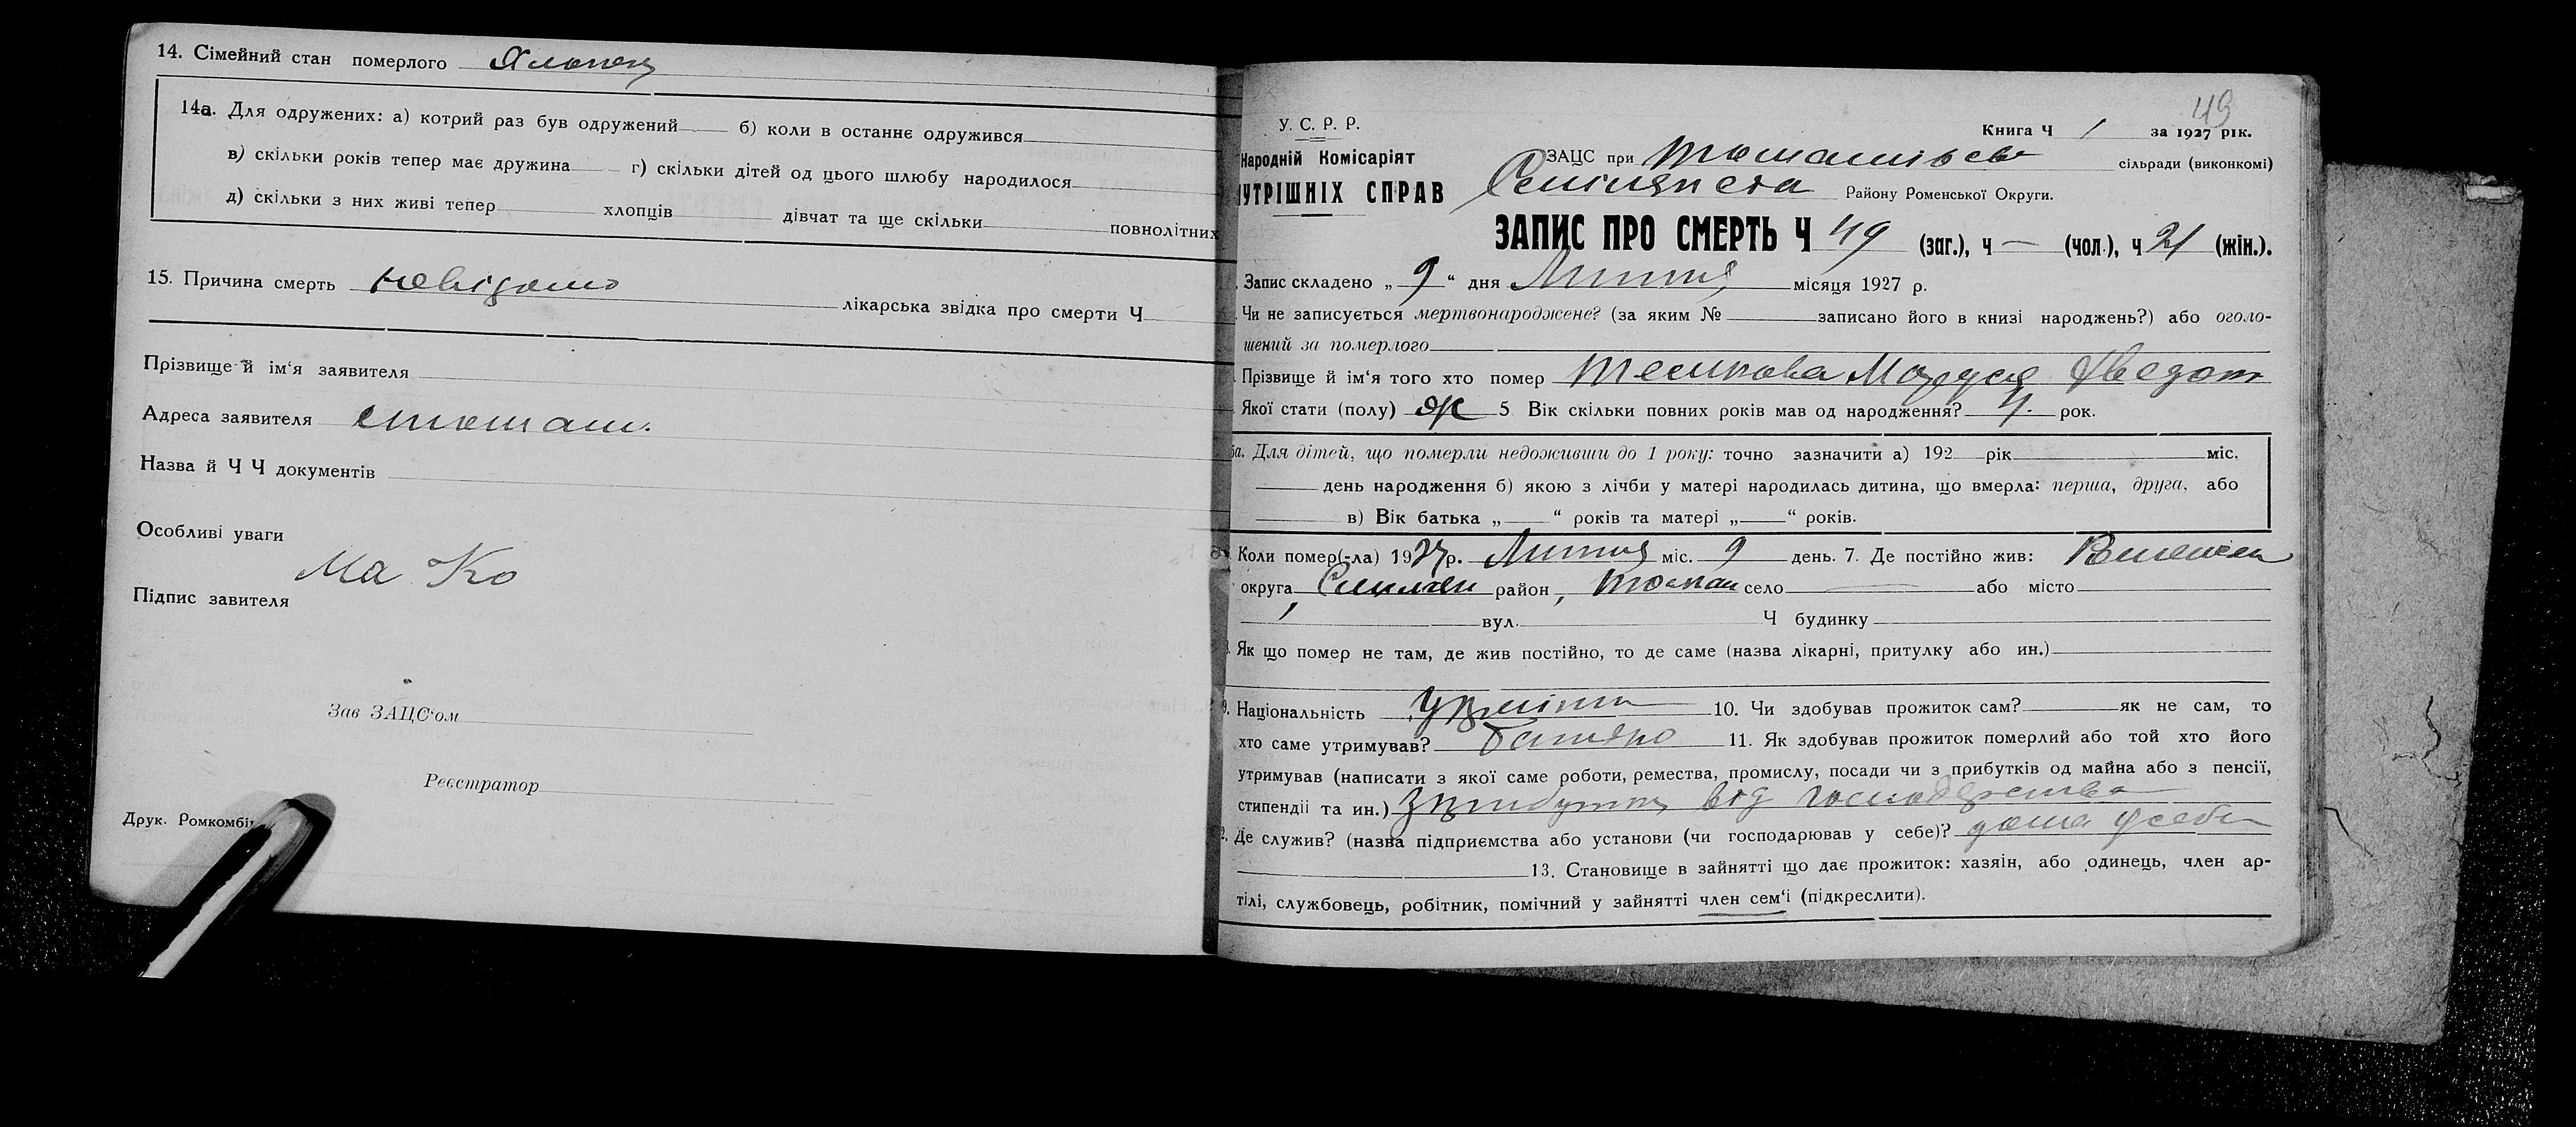 14. Сімейний стан померлого Хлопец
14а. Для одружених: а) котрий раз був одружений б) коли в останнє одружився
в) скільки років тепер має дружина г) скільки дітей од цього шлюбу народилося
д) скільки з них живі тепер хлопців дівчат та ще скільки повнолітних
15. Причина смерть невідомо лікарська звідка про смерти Ч
Прізвище й ім'я заявителя
Адреса заявителя
Назва й Ч Ч документів
Особливі уваги
Ма Ко
Підпис завителя
Зав ЗАЦС'ом
Реєстратор
Друк. Ромкомбі
49
У. С. Р. Р.
Книга Ч 1 за 1927 рік.
Народній Комісаріят
ЗАЦС при сільради (виконкомі)
УТРІШНІХ СПРАВ
Району Роменської Округи.
ЗАПИС ПРО СМЕРТЬ Ч 49 (заг.), ч — (чол.), ч 21 (жін.).
Запис складено „ 9 “ дня Липня місяця 1927 р.
Чи не записується мертвонароджене? (за яким № записано його в книзі народжень?) або оголо-
шений за померлого
Прізвище й ім'я того хто помер Маруся Хведот
Якої стати (полу) ж 5 Вік скільки повних років мав од народження? 4. рок.
5а. Для дітей, що померли недоживши до 1 року: точно зазначити а) 192 рік міс.
день народження б) якою з лічби у матері народилась дитина, що вмерла: перша, друга, або
в) Вік батька „ “ років та матері „ “ років.
Коли помер(-ла) 1927р. Липня міс. 9 день. 7. Де постійно жив:
округа, район, село або місто
вул. Ч будинку
Як що помер не там, де жив постійно, то де саме (назва лікарні, притулку або ин.)
9. Національність 10. Чи здобував прожиток сам? як не сам, то
хто саме утримував? Батько 11. Як здобував прожиток померлий або той хто його
утримував (написати з якої саме роботи, ремества, промислу, посади чи з прибутків од майна або з пенсії,
стипендії та ин.) зприбутку від господарства
2. Де служив? (назва підприємства або установи (чи господарював у себе)? дома у себе
13. Становище в зайнятті що дає прожиток: хазяін, або одинець, член ар-
тілі, службовець, робітник, помічний у зайнятті член сем'і (підкреслити).